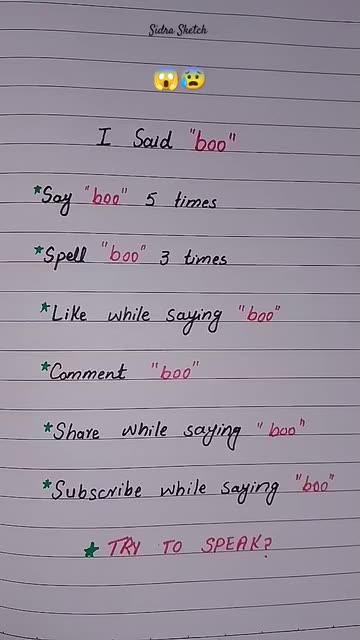 Sidra Sketch
😱😰
I Said "boo"
*Say "boo" 5 times
*Spell "boo" 3 times
*Like while saying "boo"
*Comment "boo"
*Share while saying "boo"
*Subscribe while saying "boo"
★ TRY TO SPEAK?